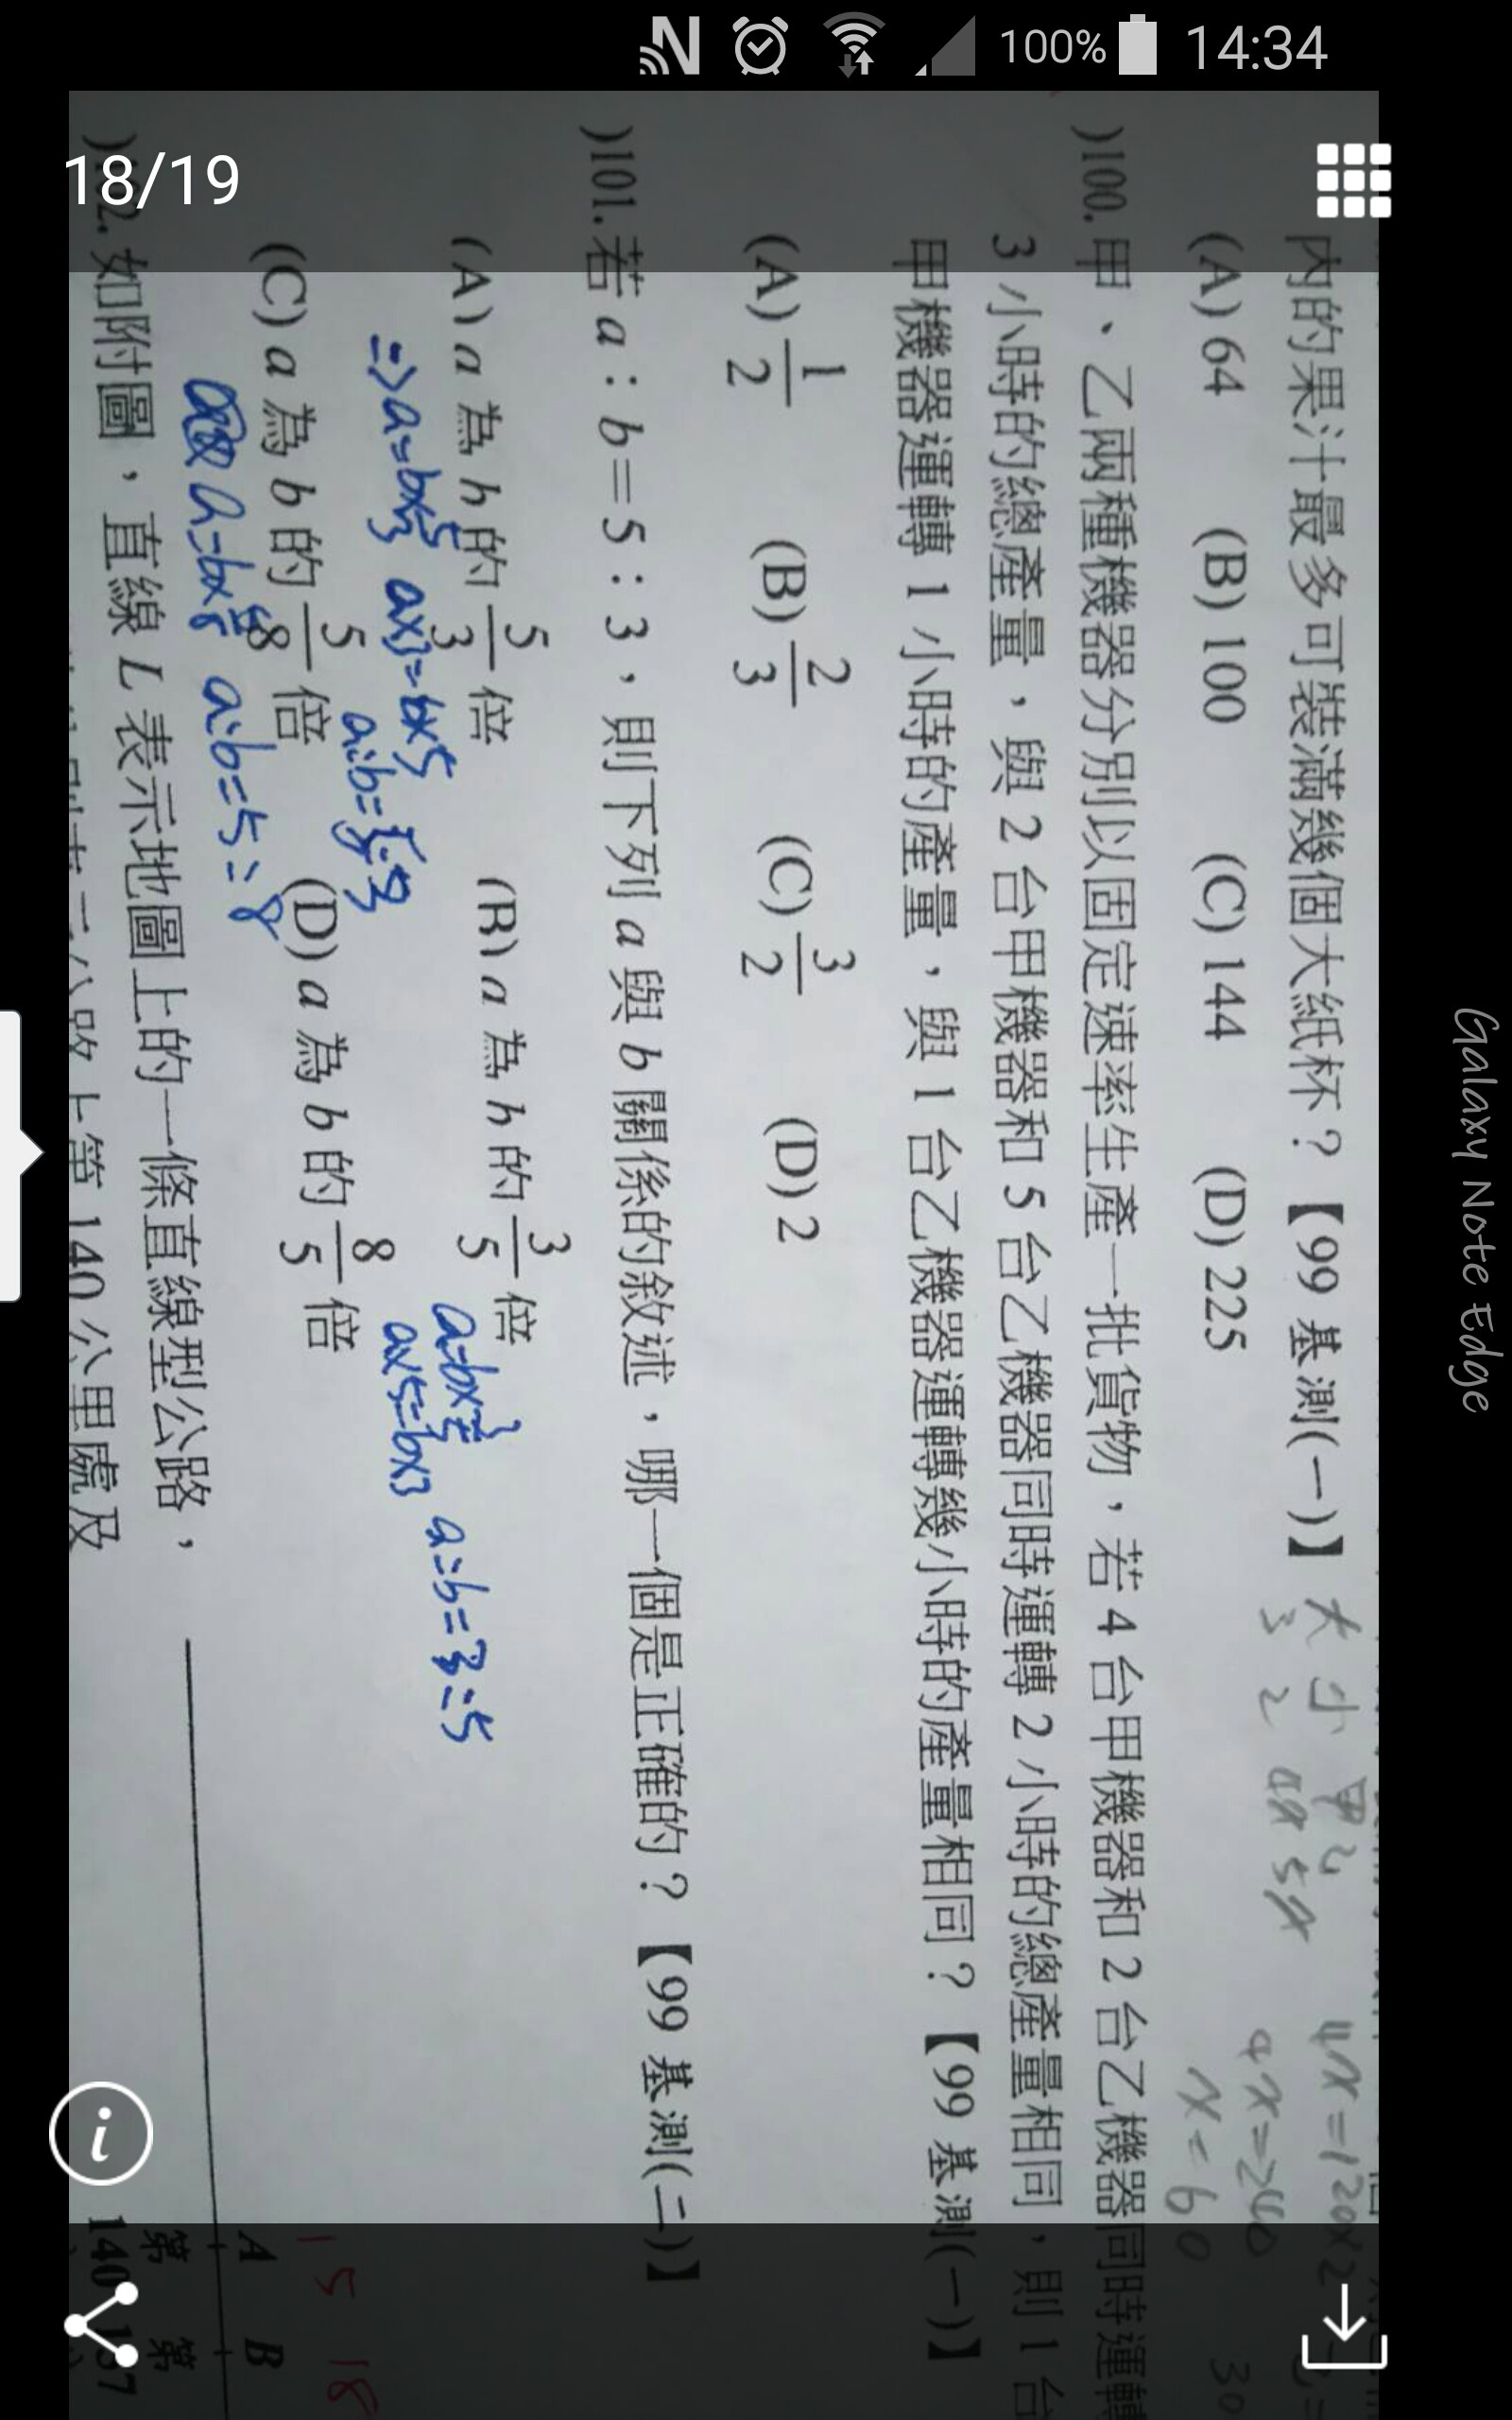 100% 14:34
18/19
內的果汁最多可裝滿幾個大紙杯？【99 基測(一)】
(A) 64 (B) 100 (C) 144 (D) 225
大 小 甲 乙
3 2 4x 5x
4x=120x2
4x=240
x=60
30
)100. 甲、乙兩種機器分別以固定速率生產一批貨物，若 4 台甲機器和 2 台乙機器同時運轉
3 小時的總產量，與 2 台甲機器和 5 台乙機器同時運轉 2 小時的總產量相同，則 1 台
甲機器運轉 1 小時的產量，與 1 台乙機器運轉幾小時的產量相同？【99 基測(一)】
(A) 1/2 (B) 2/3 (C) 3/2 (D) 2
)101. 若 a：b＝5：3，則下列 a 與 b 關係的敘述，哪一個是正確的？【99 基測(二)】
(A) a 為 b 的 5/3 倍 (B) a 為 b 的 3/5 倍
=>a=bx5/3 ax3=bx5
a:b=5:3
a=bx3/5 a:b=3:5
ax5=bx3
(C) a 為 b 的 5/8 倍 (D) a 為 b 的 8/5 倍
a=bx5/8 a:b=5:8
)102. 如附圖，直線 L 表示地圖上的一條直線型公路，
公路上第 140 公里處及
15 18
A B
第 第
140 157
Galaxy Note Edge